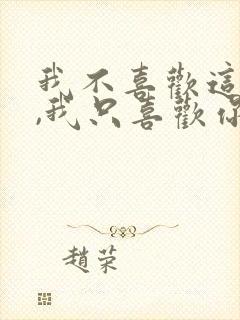 我不喜歡這
,我只喜歡你
趙荣